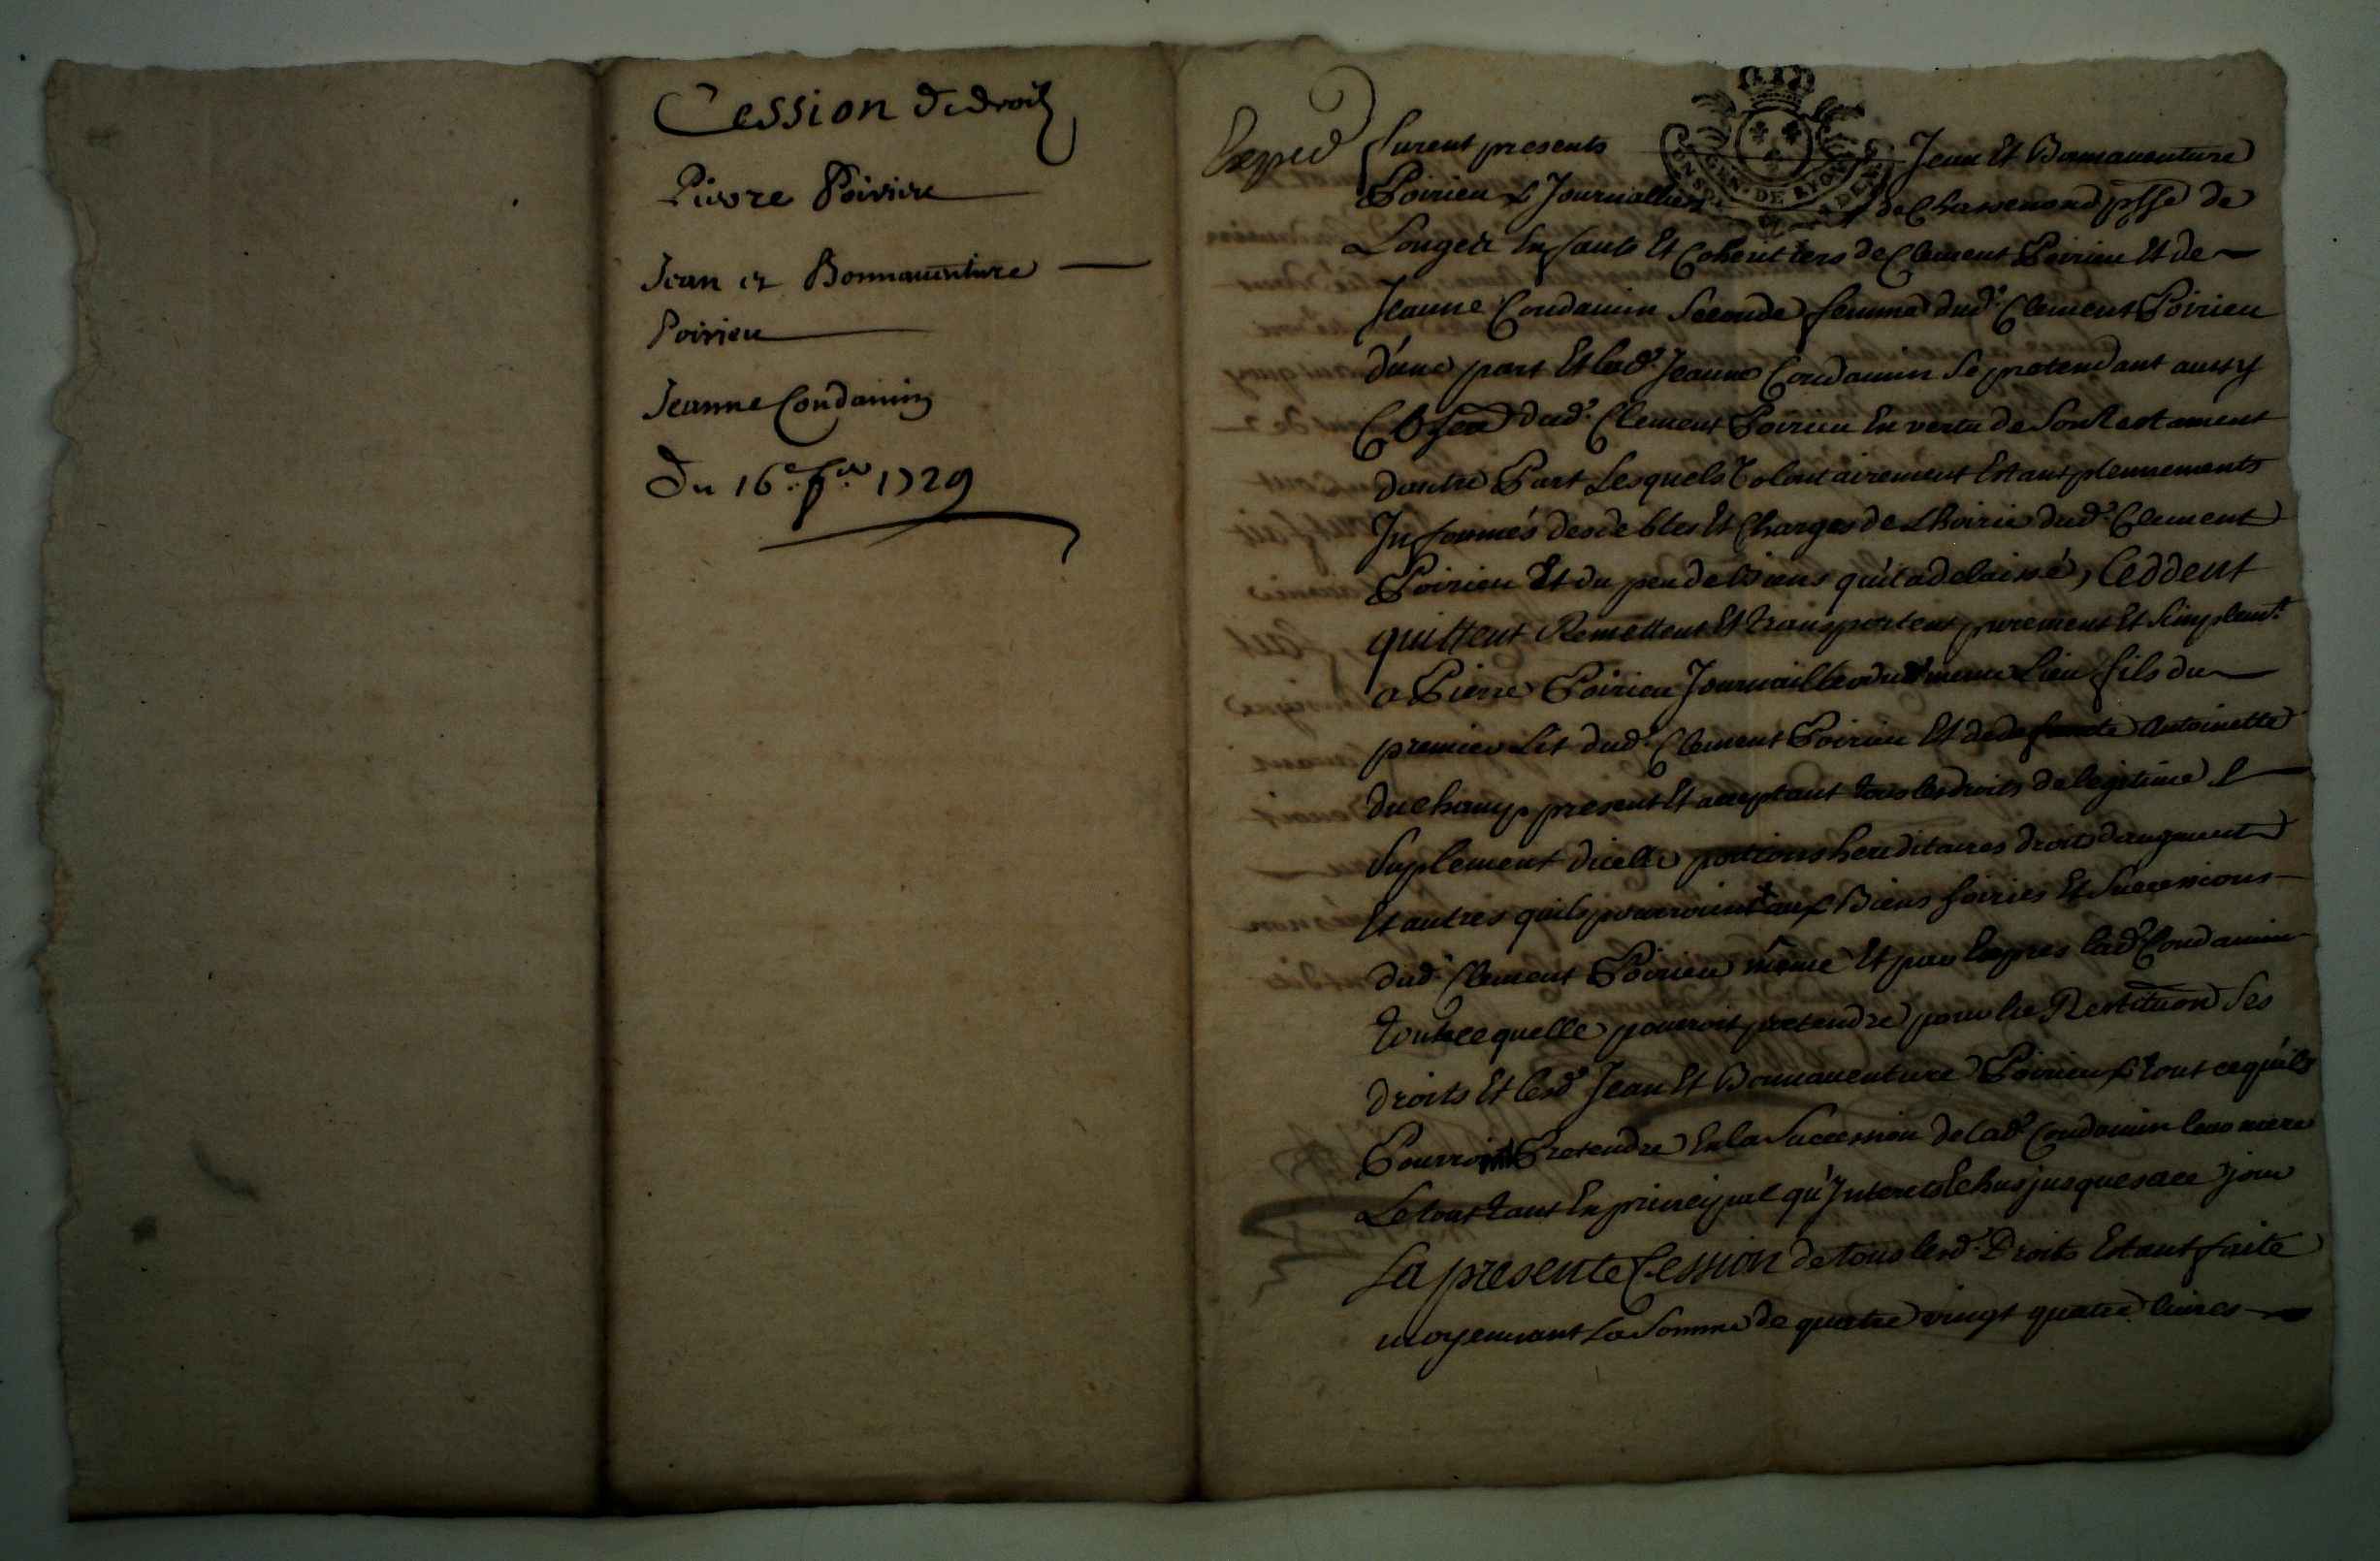 Cession de droit
Pierre Poirieu
Jean et Bonnaventure
Poirieu
Jeanne Condamin
Du 16e. 1729
Exped
furent presents Jean Et Bonnaventure
Poirieu Journalliers de Chassenond psse de
Longes Enfants Et Coheritiers de Clement Poirieu Et de
Jeanne Condamin Seconde femme dud. Clement Poirieu
d'une part Et lad. Jeanne Condamin Se pretendant aussy
dud. Clement Poirieu En vertu de Son testament
dautre Part Lesquels Volontairement Estant plennements
Informés des debtes Et Charges de Lhoirie dud. Clement
Poirieu Et du peu de biens qu'il a delaissé, Ceddent
quittent Remettent Et transportent purement Et Simplemt.
a Pierre Poirieu Journaillier dud. meme Lieu fils du
premier Lit dud. Clement Poirieu Et de defuncte Antoinette
duchamp present Et acceptant tous les droits de legitime
Suplement dicelle portions hereditaires droits daugment
Et autres quils pourroient aux Biens hoiries Et Successions
dud. Clement Poirieu même Et par Expres lad. Condamin
tout ce quelle pourroit pretendre pour la Restitution Ses
droits Et lesd. Jean Et Bonnaventure Poirieu tout ce qu'ils
Pourroient Pretendre En la Succession de lad. Condamin leur mere
Le tout tant En principal qu'Interets Echus jusques a ce jour
La presente Cession de tous lesd. Droits Estant faite
moyennant La Somme de quatre vingt quatre livres
GEN. DE LYON